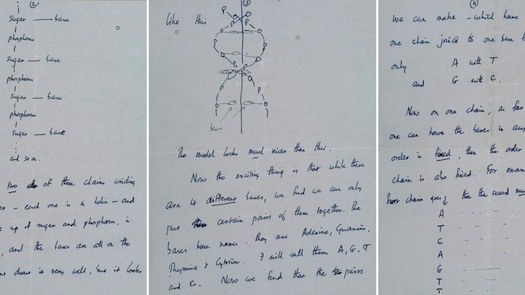 ②
Sugar — base
phosphorus
sugar — base
phosphorus
sugar — base
phosphorus
sugar — base
and so on.
two of these chains winding
er — each one is a helix — and
up of sugar and phosphorus, is
, and the bases are all on the
draw it very well, but it looks
Like this
P
P
P
P
base
The model looks much nicer than this.
Now the exciting thing is that while there
are 4 different bases, we find we can only
put certain pairs of them together. The
bases have names. They are Adenine, Guanine,
Thymine & Cytosine. I will call them A, G, T
and C. Now we find that the pairs
we can make — which have
one chain joined to one base
only
A with T
and G with C.
Now on one chain, as far
one can have the bases in any
order is fixed, then the order
chain is also fixed. For exam
chain goes then the second must
A
T
C
A
G
T
T